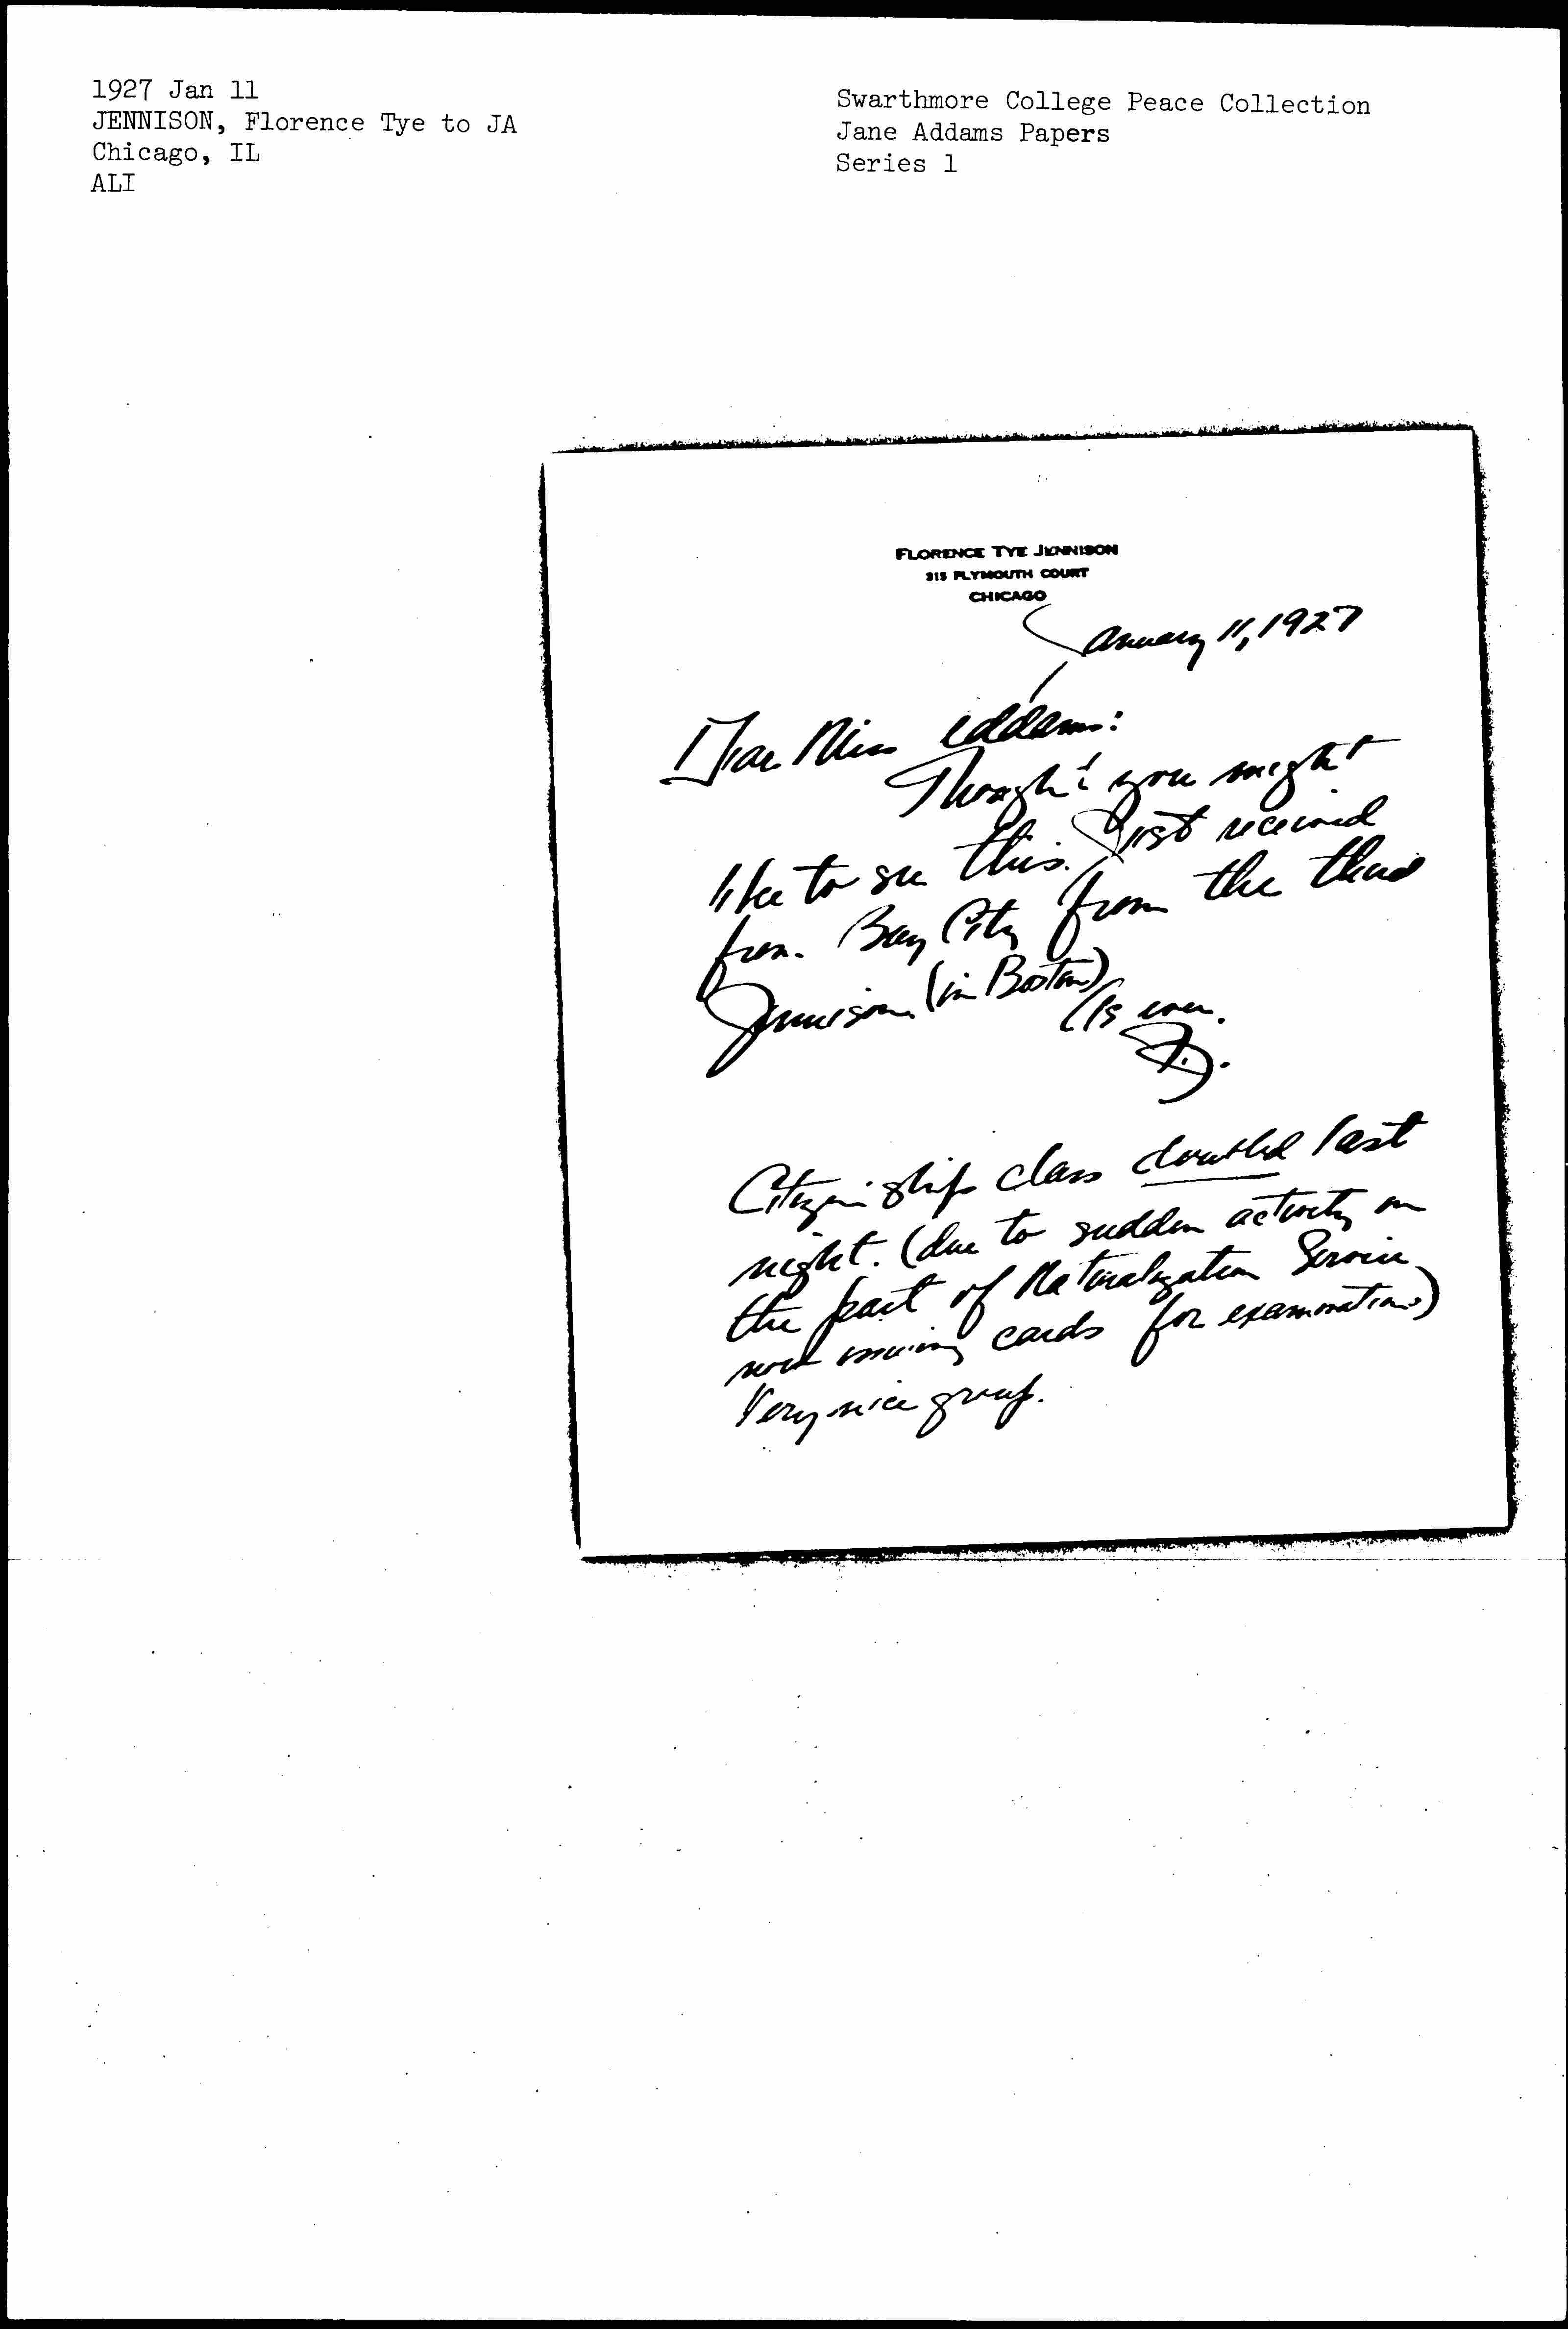 1927 Jan 11
JENNISON, Florence Tye to JA
Chicago, IL
ALI
Swarthmore College Peace Collection
Jane Addams Papers
Series 1
FLORENCE TYE JENNISON
315 PLYMOUTH COURT
CHICAGO
January 11, 1927
Dear Miss Addams:
Thought you might
like to see this. Just received
from Bay City from the third
Jennison (in Boston)
As ever.
F.J.
Citizenship class doubled last
night. (due to sudden activity on
the part of Naturalization Service
now issuing cards for examinations)
Very nice group.